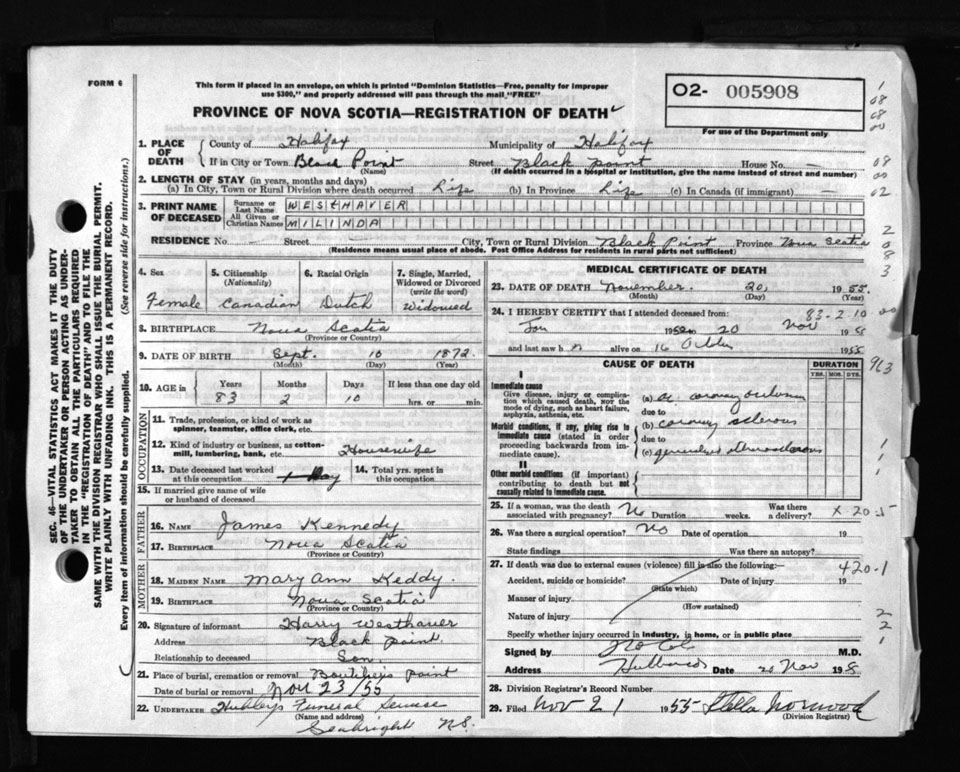 FORM 6
This form if placed in an envelope, on which is printed "Dominion Statistics—Free, penalty for improper
use $300," and properly addressed will pass through the mail "FREE"
O2- 005908
For use of the Department only
PROVINCE OF NOVA SCOTIA—REGISTRATION OF DEATH
SEC. 46—VITAL STATISTICS ACT MAKES IT THE DUTY
OF THE UNDERTAKER OR PERSON ACTING AS UNDER-
TAKER TO OBTAIN ALL THE PARTICULARS REQUIRED
IN THE "REGISTRATION OF DEATH" AND TO FILE THE
SAME WITH THE DIVISION REGISTRAR WHO SHALL ISSUE THE BURIAL PERMIT.
WRITE PLAINLY WITH UNFADING INK. THIS IS A PERMANENT RECORD.
Every item of information should be carefully supplied. (See reverse side for instructions.)
1. PLACE OF DEATH
County of Halifax Municipality of Halifax
If in City or Town Black Point Street Black point House No. —
(Name) (If death occurred in a hospital or institution, give the name instead of street and number)
2. LENGTH OF STAY (in years, months and days)
(a) In City, Town or Rural Division where death occurred Life (b) In Province Life (c) In Canada (if immigrant) —
3. PRINT NAME OF DECEASED
Surname or Last Name WESTHAVER
All Given or Christian Names MILINDA
RESIDENCE No. Street City, Town or Rural Division Black Point Province Nova Scotia
(Residence means usual place of abode. Post Office Address for residents in rural parts not sufficient)
4. Sex Female
5. Citizenship (Nationality) Canadian
6. Racial Origin Dutch
7. Single, Married, Widowed or Divorced (write the word) Widowed
8. BIRTHPLACE Nova Scotia
(Province or Country)
9. DATE OF BIRTH Sept. 10 1872
(Month) (Day) (Year)
10. AGE in Years 83 Months 2 Days 10 If less than one day old hrs. or min.
OCCUPATION
11. Trade, profession, or kind of work as
spinner, teamster, office clerk, etc.
12. Kind of industry or business, as cotton-
mill, lumbering, bank, etc. Housewife
13. Date deceased last worked
at this occupation 1 Day
14. Total yrs. spent in
this occupation
15. If married give name of wife
or husband of deceased
FATHER
16. NAME James Kennedy
17. BIRTHPLACE Nova Scotia
(Province or Country)
MOTHER
18. MAIDEN NAME Mary Ann Keddy.
19. BIRTHPLACE Nova Scotia
(Province or Country)
20. Signature of informant Harry Westhaver
Address Black point
Relationship to deceased Son
21. Place of burial, cremation or removal Boutiliers Point
Date of burial or removal Nov 23/55
22. UNDERTAKER Hubleys Funeral Service
(Name and address)
Seabright N.S.
MEDICAL CERTIFICATE OF DEATH
23. DATE OF DEATH November 20, 1955
(Month) (Day) (Year)
83-2-10
24. I HEREBY CERTIFY that I attended deceased from:
Jan 19 20 Nov 19
and last saw h alive on 16 1955
CAUSE OF DEATH
DURATION
YRS. MOS. DYS.
I
Immediate cause
Give disease, injury or complica-
tion which caused death, not the
mode of dying, such as heart failure,
asphyxia, asthenia, etc.
(a) ac. coronary
due to
Morbid conditions, if any, giving rise to
immediate cause (stated in order
proceeding backwards from im-
mediate cause).
(b) coronary sclerosis
due to
(c) generalized
II
Other morbid conditions (if important)
contributing to death but not
causally related to immediate cause.
963
25. If a woman, was the death
associated with pregnancy? No Duration weeks. Was there
a delivery? X-20-5
26. Was there a surgical operation? No Date of operation 19
State findings Was there an autopsy?
27. If death was due to external causes (violence) fill in also the following:—
420-1
Accident, suicide or homicide? Date of injury 19
(State which)
Manner of injury
(How sustained)
Nature of injury
Specify whether injury occurred in industry, in home, or in public place
Signed by M.D.
Address Hubbards Date 20 Nov 19
28. Division Registrar's Record Number
29. Filed Nov 21 1955 Stella Norwood
(Division Registrar)